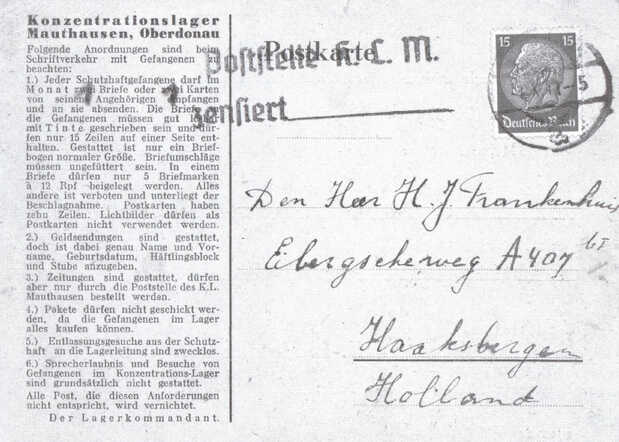 Konzentrationslager
Mauthausen, Oberdonau
Folgende Anordnungen sind beim
Schriftverkehr mit Gefangenen zu
beachten:
1.) Jeder Schutzhaftgefangene darf im
Monat Briefe oder zwei Karten
von seinen Angehörigen empfangen
und an sie absenden. Die Briefe an
die Gefangenen müssen gut lesbar
mit Tinte geschrieben sein und dür-
fen nur 15 Zeilen auf einer Seite ent-
halten. Gestattet ist nur ein Brief-
bogen normaler Größe. Briefumschläge
müssen ungefüttert sein. In einem
Briefe dürfen nur 5 Briefmarken
à 12 Rpf beigelegt werden. Alles
andere ist verboten und unterliegt der
Beschlagnahme. Postkarten haben
zehn Zeilen. Lichtbilder dürfen als
Postkarten nicht verwendet werden.
2.) Geldsendungen sind gestattet,
doch ist dabei genau Name und Vor-
name, Geburtsdatum, Häftlingsblock
und Stube anzugeben.
3.) Zeitungen sind gestattet, dürfen
aber nur durch die Poststelle des K.L.
Mauthausen bestellt werden.
4.) Pakete dürfen nicht geschickt wer-
den, da die Gefangenen im Lager
alles kaufen können.
5.) Entlassungsgesuche aus der Schutz-
haft an die Lagerleitung sind zwecklos.
6.) Sprecherlaubnis und Besuche von
Gefangenen im Konzentrations-Lager
sind grundsätzlich nicht gestattet.
Alle Post, die diesen Anforderungen
nicht entspricht, wird vernichtet.
Der Lagerkommandant.
Postkarte
Poststelle K. L. M.
zensiert
15 15
Deutsches Reich
Den Heer H. J. Frankenhuis
Eibergscheweg A 407
Haaksbergen
Holland